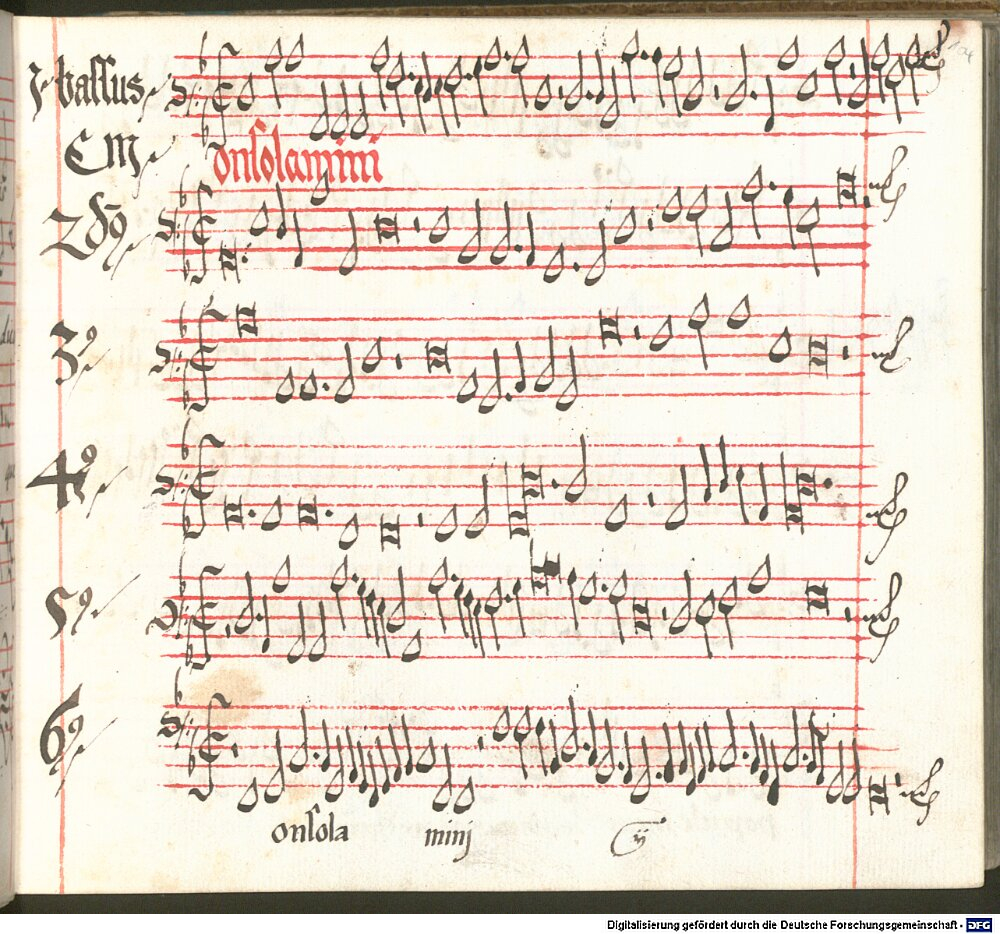 bassus
C M
onsolamini
2d9
39
49
59
69
onsola mini ij
Digitalisierung gefördert durch die Deutsche Forschungsgemeinschaft - DFG